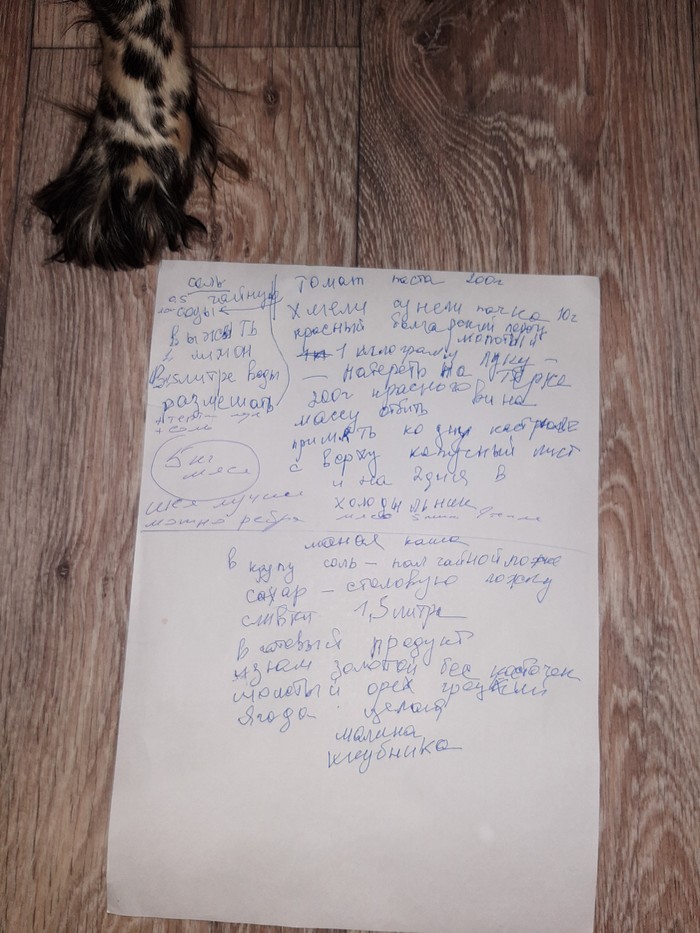 соль
0,5 чайную
соды
выжать
1 лимон
В 1,5 литре воды
размешать
+ соль
5 кг
мяса
шея лучше
можно ребра
томат паста 200г
Хмели сунели пачка 10г
красный болгарский перец
молотый
1 килограмм луку –
– натереть на терке
200г красного вина
массу отбить
примять ко дну кастрюле
с верху капусный лист
и на 2 дня в
холодыльник
маная каша
в крупу соль – пол чайной ложке
сахар – столовую ложку
сливки 1,5 литра
в готовый продукт
изюм золотой бес косточек
молотый орех грецкий
ягода целая
малина
клубника